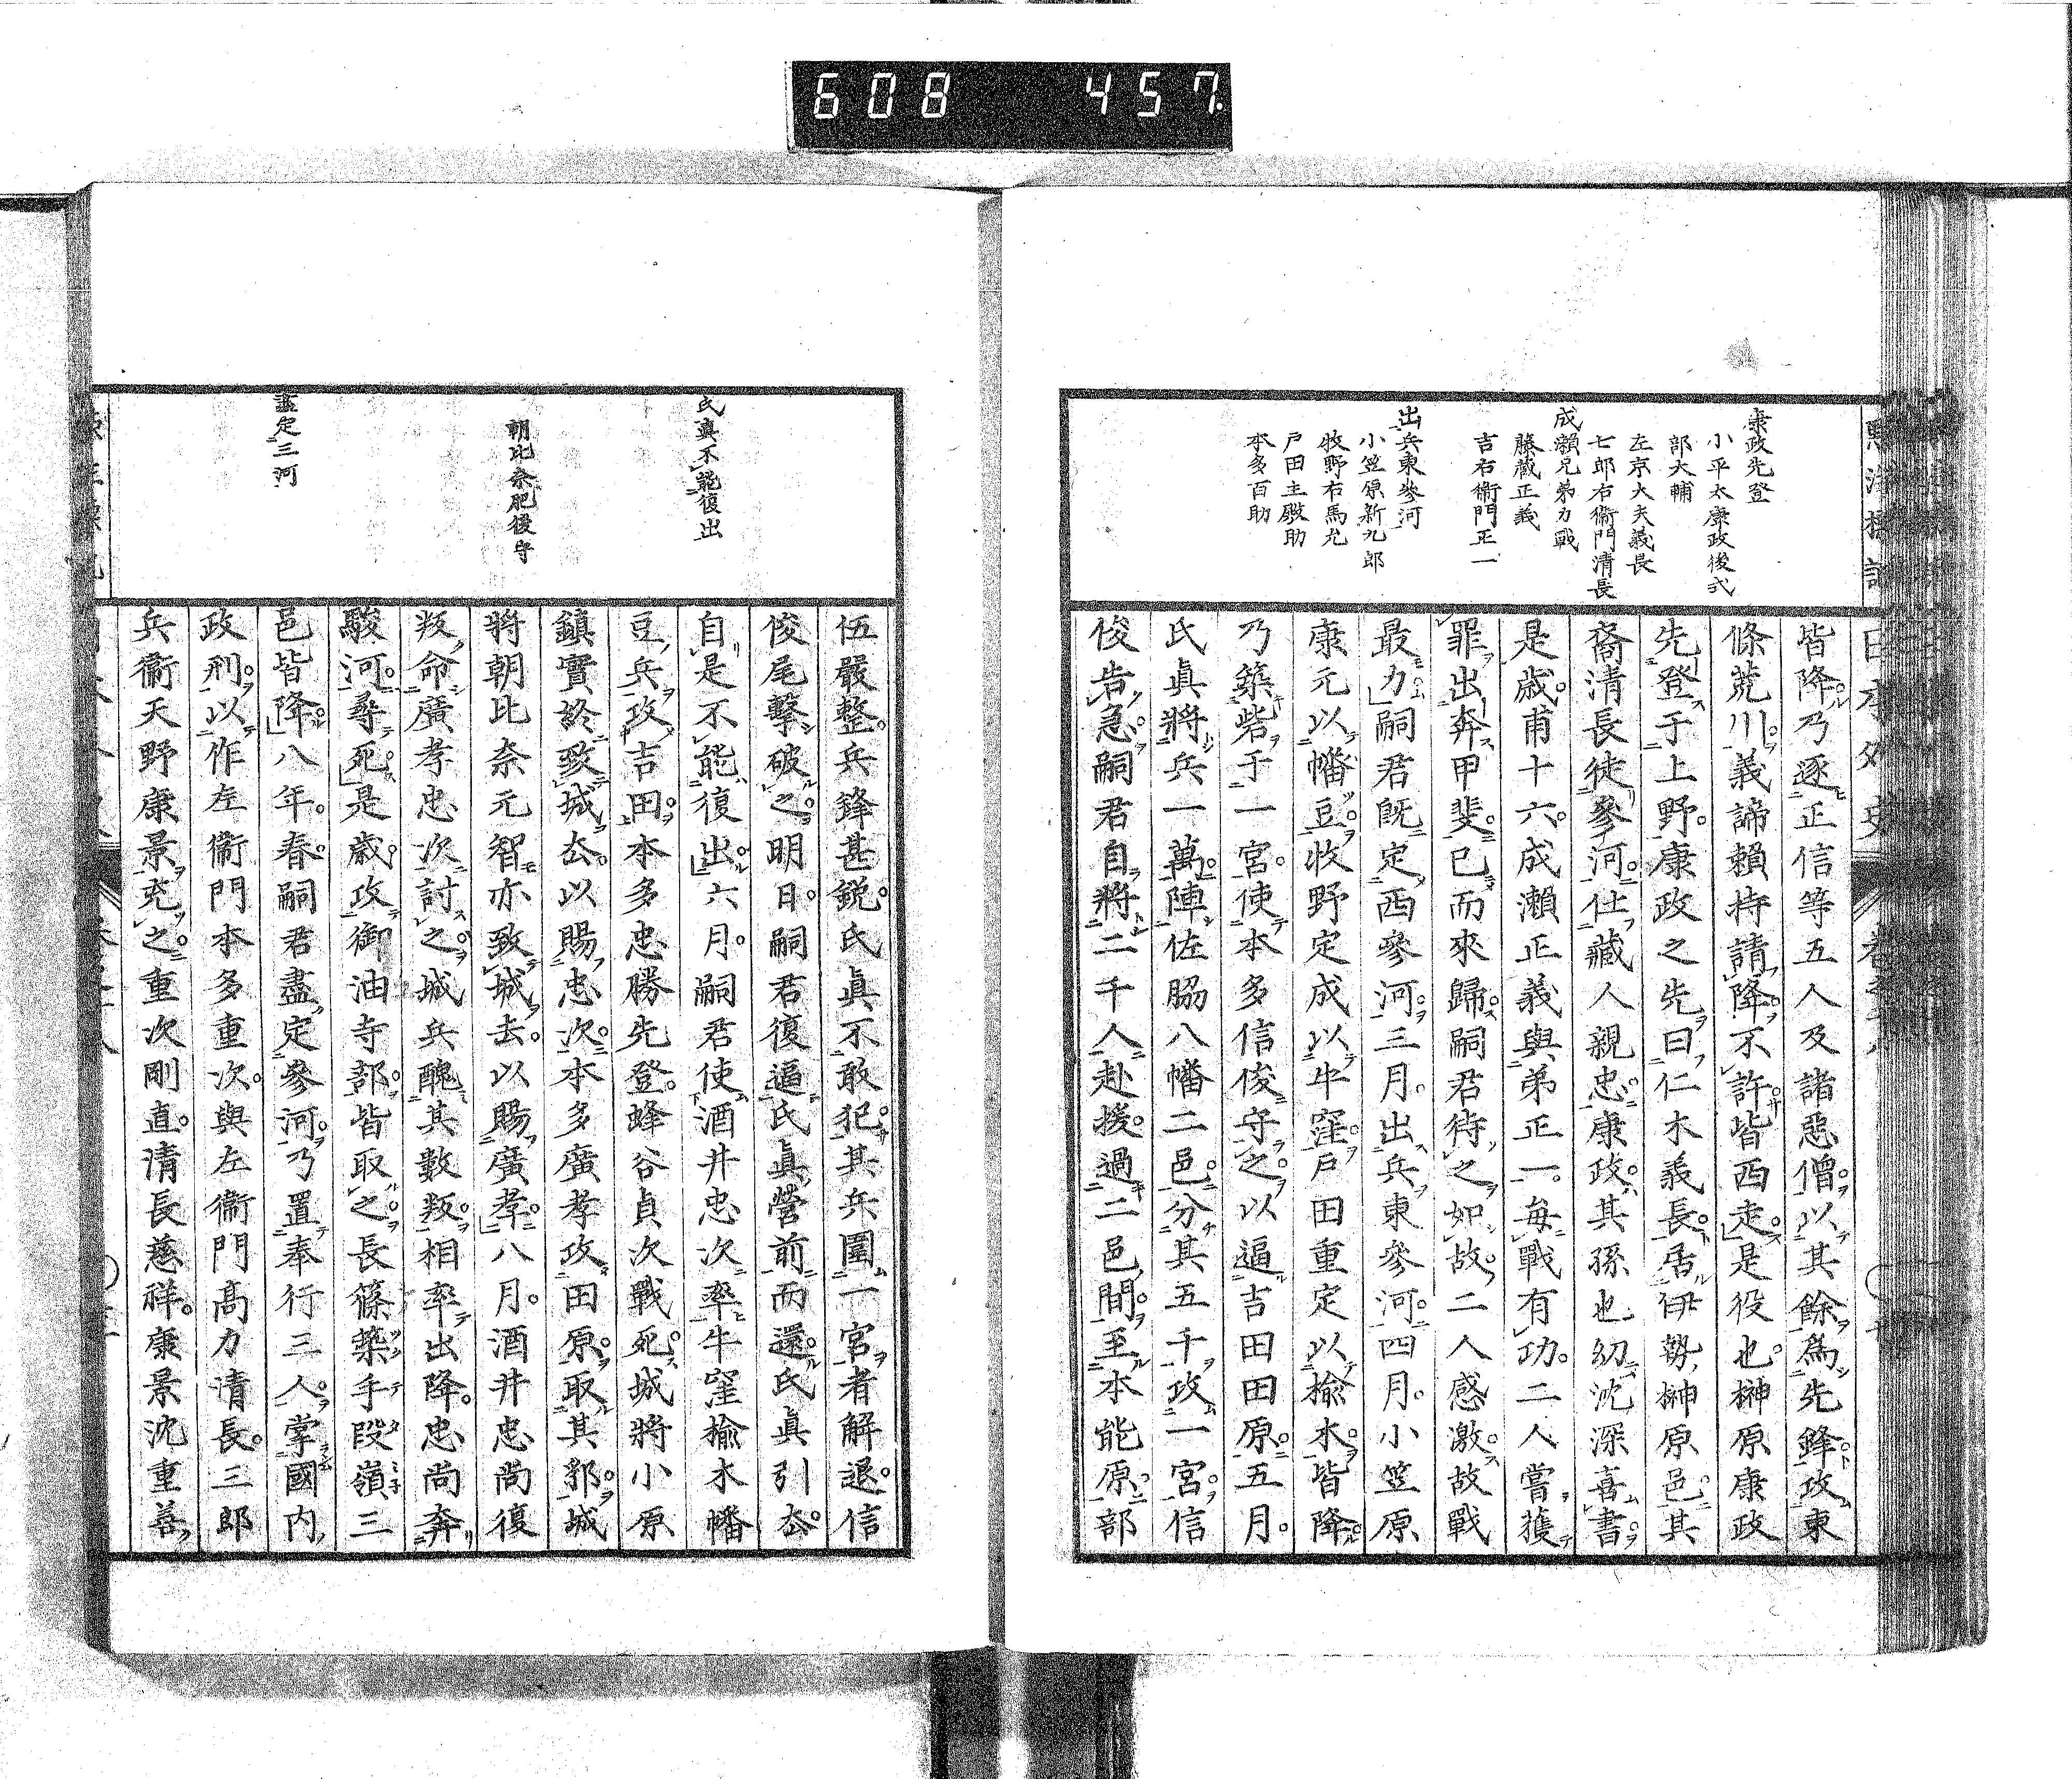 608 457
康政先登
小平太康政後式
部大輔
左京大夫義長
七郎右衞門清長
成瀨兄弟力戰
藤藏正義
吉右衞門正一
出兵東參河
小笠原新九郎
牧野右馬允
戶田主殿助
本多百助
日本外史
皆降乃逐正信等五人及諸惡僧以其餘爲先鋒攻東
條荒川義諦賴持請降不許皆西走是役也榊原康政
先登于上野康政之先曰仁木義長居伊勢榊原邑其
裔清長徒參河仕藏人親忠康政其孫也幼沈深喜書
是歲甫十六成瀨正義與弟正一每戰有功二人嘗獲
罪出奔甲斐已而來歸嗣君待之如故二人感激故戰
最力嗣君旣定西參河三月出兵東參河四月小笠原
康元以幡豆牧野定成以牛窪戶田重定以楡木皆降
乃築砦于一宮使本多信俊守之以逼吉田田原五月
氏眞將兵一萬陣佐脇八幡二邑分其五千攻一宮信
俊告急嗣君自將二千人赴援過二邑間至本能原部
氏眞不能復出
朝比奈肥後守
盡定三河
伍嚴整兵鋒甚銳氏眞不敢犯其兵圍一宮者解退信
俊尾擊破之明日嗣君復逼氏眞營前而還氏眞引去
自是不能復出六月嗣君使酒井忠次率牛窪楡木幡
豆兵攻吉田本多忠勝先登蜂谷貞次戰死城將小原
鎭實終致城去以賜忠次本多廣孝攻田原取其郛城
將朝比奈元智亦致城去以賜廣孝八月酒井忠尚復
叛命廣孝忠次討之城兵醜其數叛相率出降忠尚奔
駿河尋死是歲攻御油寺部皆取之長篠築手段嶺三
邑皆降八年春嗣君盡定參河乃置奉行三人掌國內
政刑以作左衞門本多重次與左衞門高力清長三郎
兵衞天野康景充之重次剛直清長慈祥康景沈重善